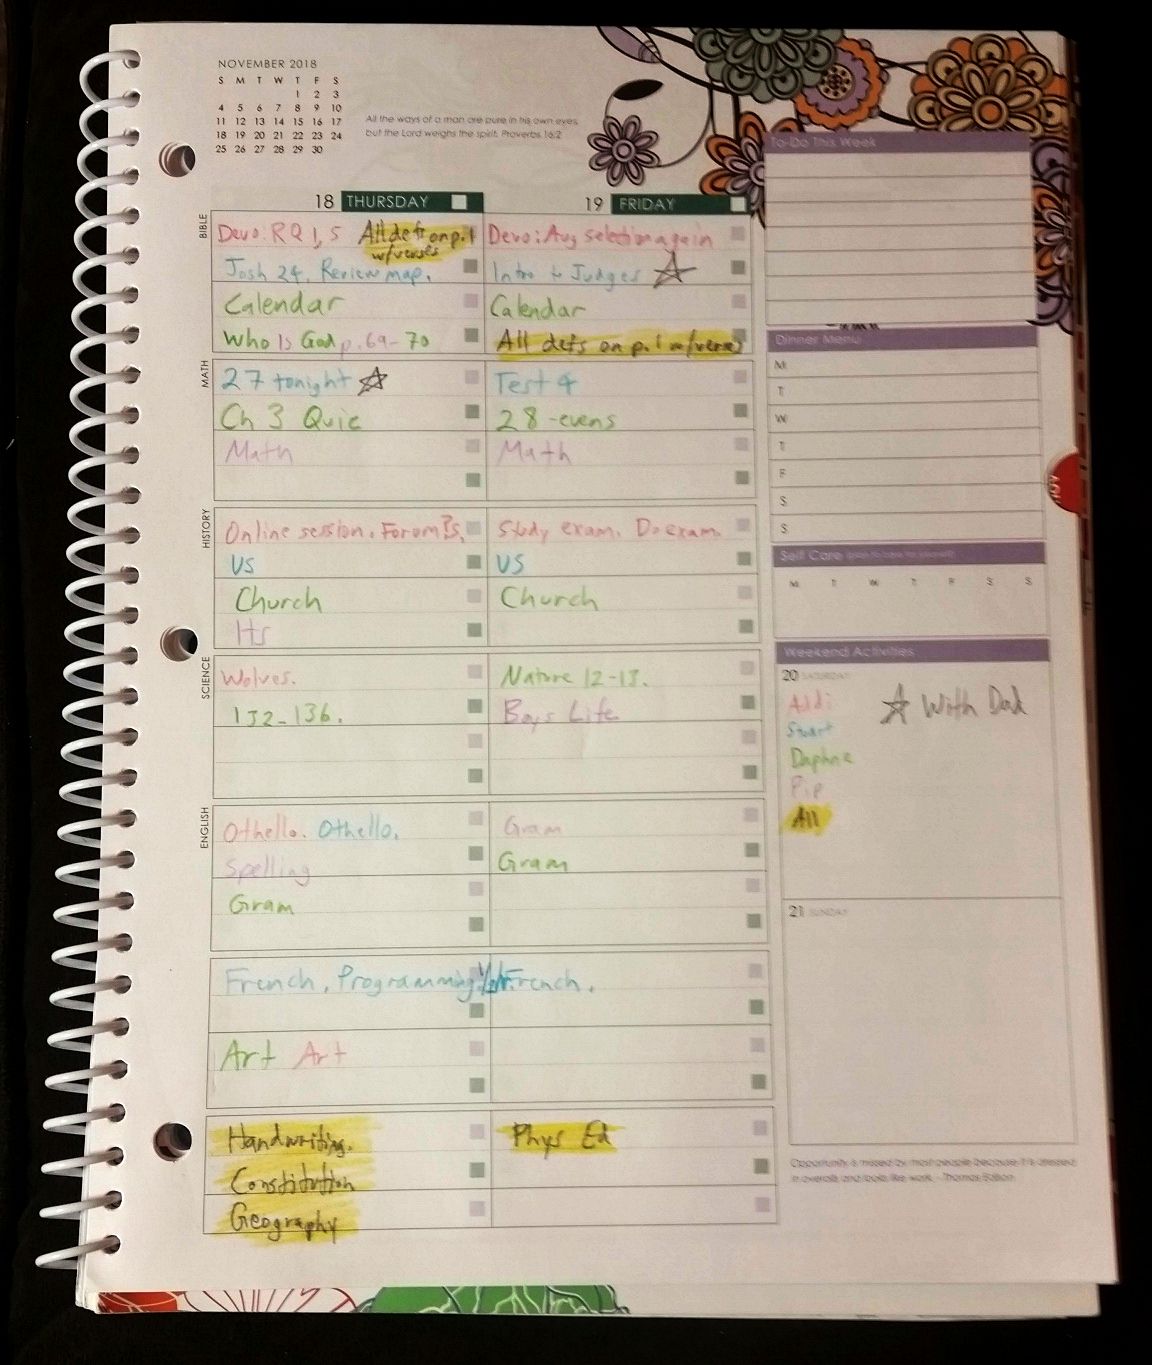 NOVEMBER 2018
S M T W T F S
1 2 3
4 5 6 7 8 9 10
11 12 13 14 15 16 17
18 19 20 21 22 23 24
25 26 27 28 29 30
All the ways of a man are pure in his own eyes,
but the Lord weighs the spirit. Proverbs 16:2
18 THURSDAY
BIBLE
Devo: RQ 1, 5 All defs on p. 1
w/verses
Josh 24. Review map.
Calendar
Who Is God p. 69-70
MATH
27 tonight
Ch 3 Quiz
Math
HISTORY
Online session. Forum ?s.
US
Church
Its
SCIENCE
Wolves.
132-136.
ENGLISH
Othello. Othello.
Spelling
Gram
French, Programming
Art Art
Handwriting.
Constitution
Geography
19 FRIDAY
Devo: Aug selection again
Intro to Judges
Calendar
All defs on p. 1 w/verses
Test 4
28 -evens
Math
Study exam. Do exam.
US
Church
Nature 12-13.
Boys Life
Gram
Gram
French.
Phys Ed
To-Do This Week
Dinner Menu
M
T
W
T
F
S
S
Self Care
M T W T F S S
Weekend Activities
20 SATURDAY
Addi
With Dad
Stuart
Daphne
Pip
All
21 SUNDAY
Opportunity is missed by most people because it is dressed
in overalls and looks like work. -Thomas Edison